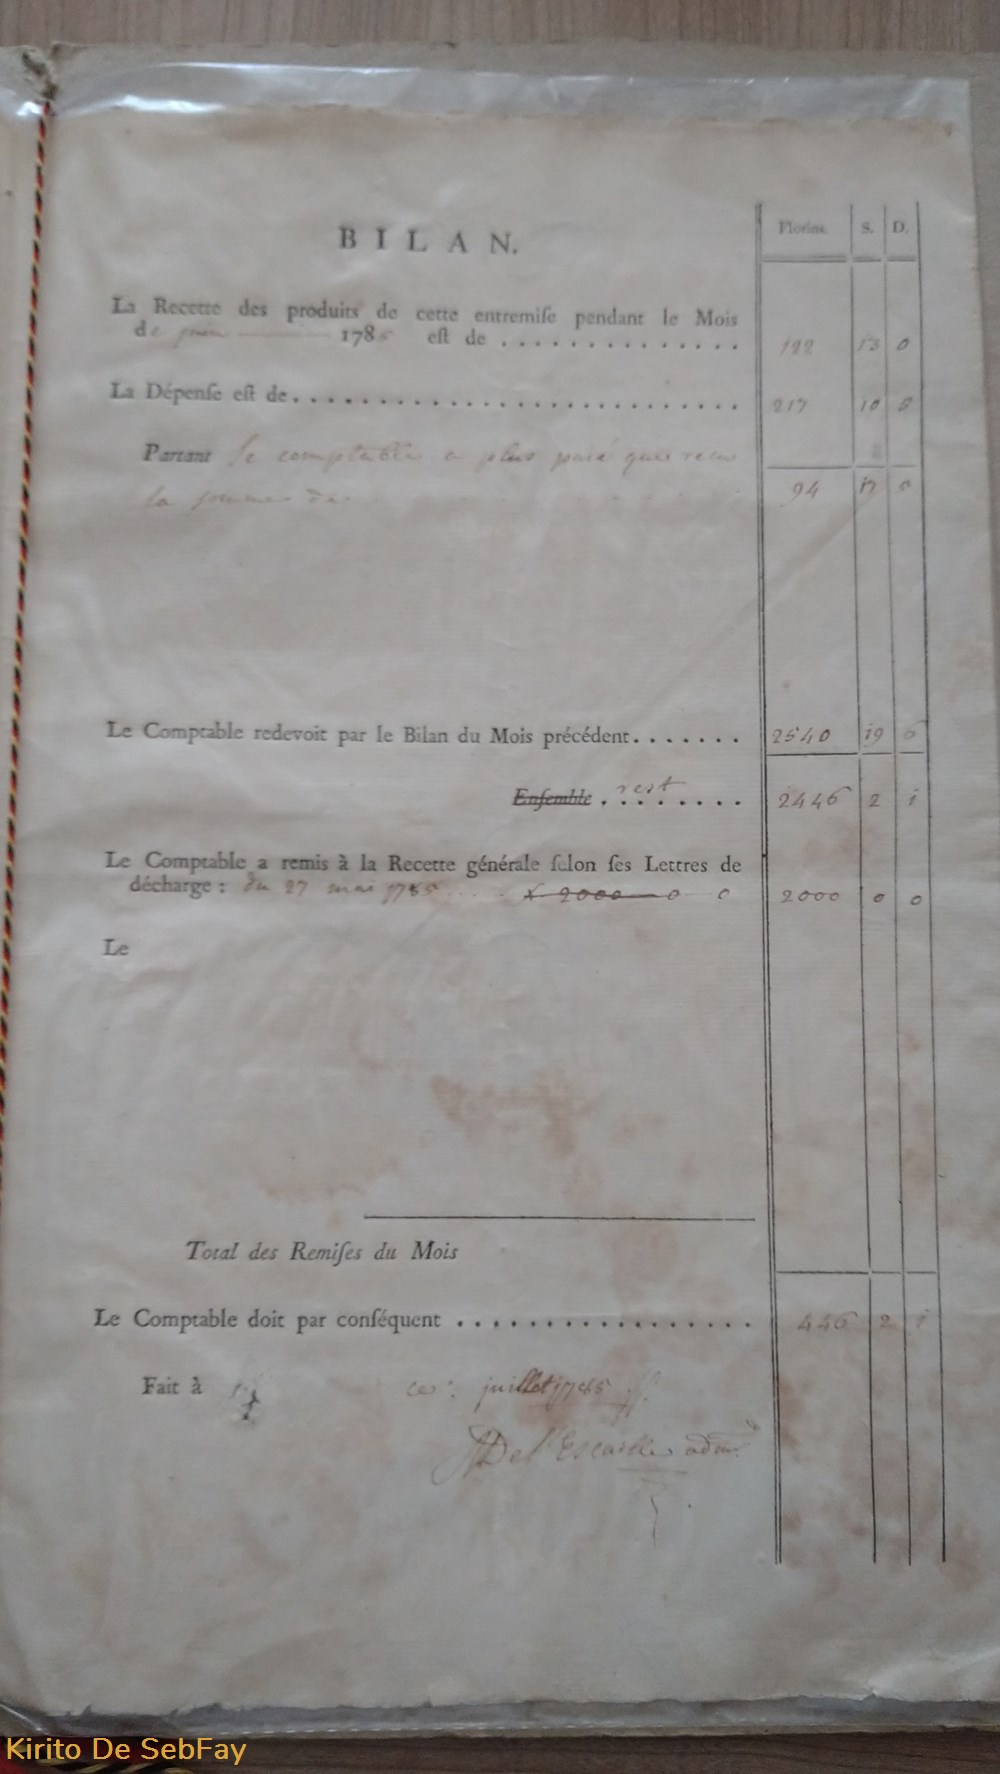 BILAN.
Florins. S. D.
La Recette des produits de cette entremiſe pendant le Mois
de juin 1785 eſt de . . . . . . . . . . . . . . 122 13 0
La Dépenſe eſt de. . . . . . . . . . . . . . . . . . . . . . . . . . . 217 10
Partant le comptable a plus paié que recu
la somme de 94 17
Le Comptable redevoit par le Bilan du Mois précédent. . . . . . . 2540 19 6
Enſemble . rest . . . . . . . 2446 2 1
Le Comptable a remis à la Recette générale ſelon ſes Lettres de
décharge : du 27 mai 1785 . . . . 2000 0 0 2000 0 0
Le
Total des Remiſes du Mois
Le Comptable doit par conſéquent . . . . . . . . . . . . . . . . . 446 2 1
Fait à ce juillet 1785
De l'Escaille adm
Kirito De SebFay